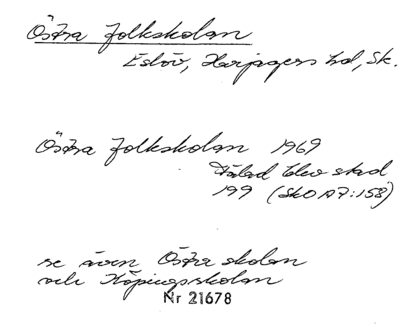 Östra folkskolan
Eslöv, Harjagers hd, Sk.
Östra folkskolan 1969
stad
199 (SkO A7:158)
se även Östra skolan
och Köpingsskolan
Nr 21678